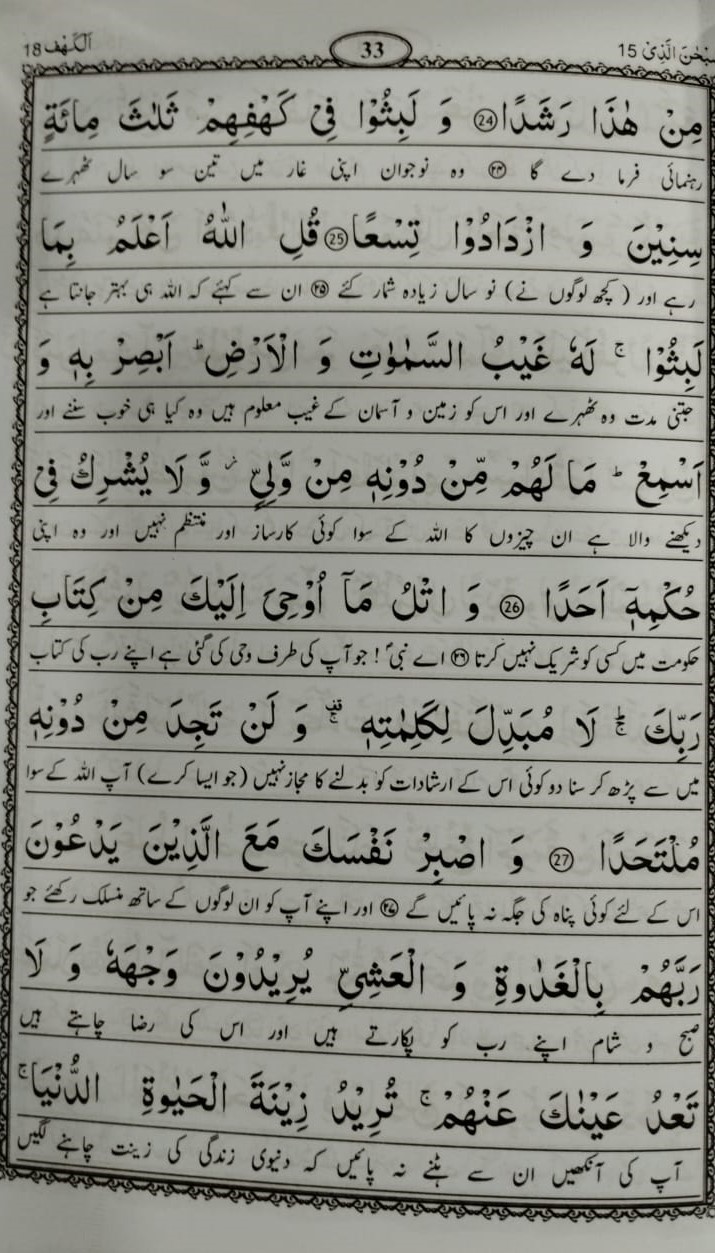 سُبْحٰنَ الَّذِیْ 15 33 اَلْكَهْف 18
مِنْ هٰذَا رَشَدًا ﴿24﴾ وَ لَبِثُوْا فِیْ كَهْفِهِمْ ثَلٰثَ مِائَةٍ
رہنمائی فرما دے گا ﴿۲۴﴾ وہ نوجوان اپنی غار میں تین سو سال ٹھہرے
سِنِیْنَ وَ ازْدَادُوْا تِسْعًا ﴿25﴾ قُلِ اللّٰهُ اَعْلَمُ بِمَا
رہے اور ( کچھ لوگوں نے ) نو سال زیادہ شمار کئے ﴿۲۵﴾ ان سے کہئے کہ اللہ ہی بہتر جانتا ہے
لَبِثُوْا ۚ لَهٗ غَیْبُ السَّمٰوٰتِ وَ الْاَرْضِ ؕ اَبْصِرْ بِهٖ وَ
جتنی مدت وہ ٹھہرے اور اس کو زمین و آسمان کے غیب معلوم ہیں وہ کیا ہی خوب سننے اور
اَسْمِعْ ؕ مَا لَهُمْ مِّنْ دُوْنِهٖ مِنْ وَّلِیٍّ ۫ وَّ لَا یُشْرِكُ فِیْ
دیکھنے والا ہے ان چیزوں کا اللہ کے سوا کوئی کارساز اور منتظم نہیں اور وہ اپنی
حُكْمِهٖۤ اَحَدًا ﴿26﴾ وَ اتْلُ مَاۤ اُوْحِیَ اِلَیْكَ مِنْ كِتَابِ
حکومت میں کسی کو شریک نہیں کرتا ﴿۲۶﴾ اے نبیؐ ! جو آپ کی طرف وحی کی گئی ہے اپنے رب کی کتاب
رَبِّكَ ۚؕ لَا مُبَدِّلَ لِكَلِمٰتِهٖ ۚ۫ وَ لَنْ تَجِدَ مِنْ دُوْنِهٖ
میں سے پڑھ کر سنا دو کوئی اس کے ارشادات کو بدلنے کا مجاز نہیں ( جو ایسا کرے ) آپ اللہ کے سوا
مُلْتَحَدًا ﴿27﴾ وَ اصْبِرْ نَفْسَكَ مَعَ الَّذِیْنَ یَدْعُوْنَ
اس کے لئے کوئی پناہ کی جگہ نہ پائیں گے ﴿۲۷﴾ اور اپنے آپ کو ان لوگوں کے ساتھ منسلک رکھئے جو
رَبَّهُمْ بِالْغَدٰوةِ وَ الْعَشِیِّ یُرِیْدُوْنَ وَجْهَهٗ وَ لَا
صبح و شام اپنے رب کو پکارتے ہیں اور اس کی رضا چاہتے ہیں
تَعْدُ عَیْنٰكَ عَنْهُمْ ۚ تُرِیْدُ زِیْنَةَ الْحَیٰوةِ الدُّنْیَا ۚ
آپ کی آنکھیں ان سے ہٹنے نہ پائیں کہ دنیوی زندگی کی زینت چاہنے لگیں